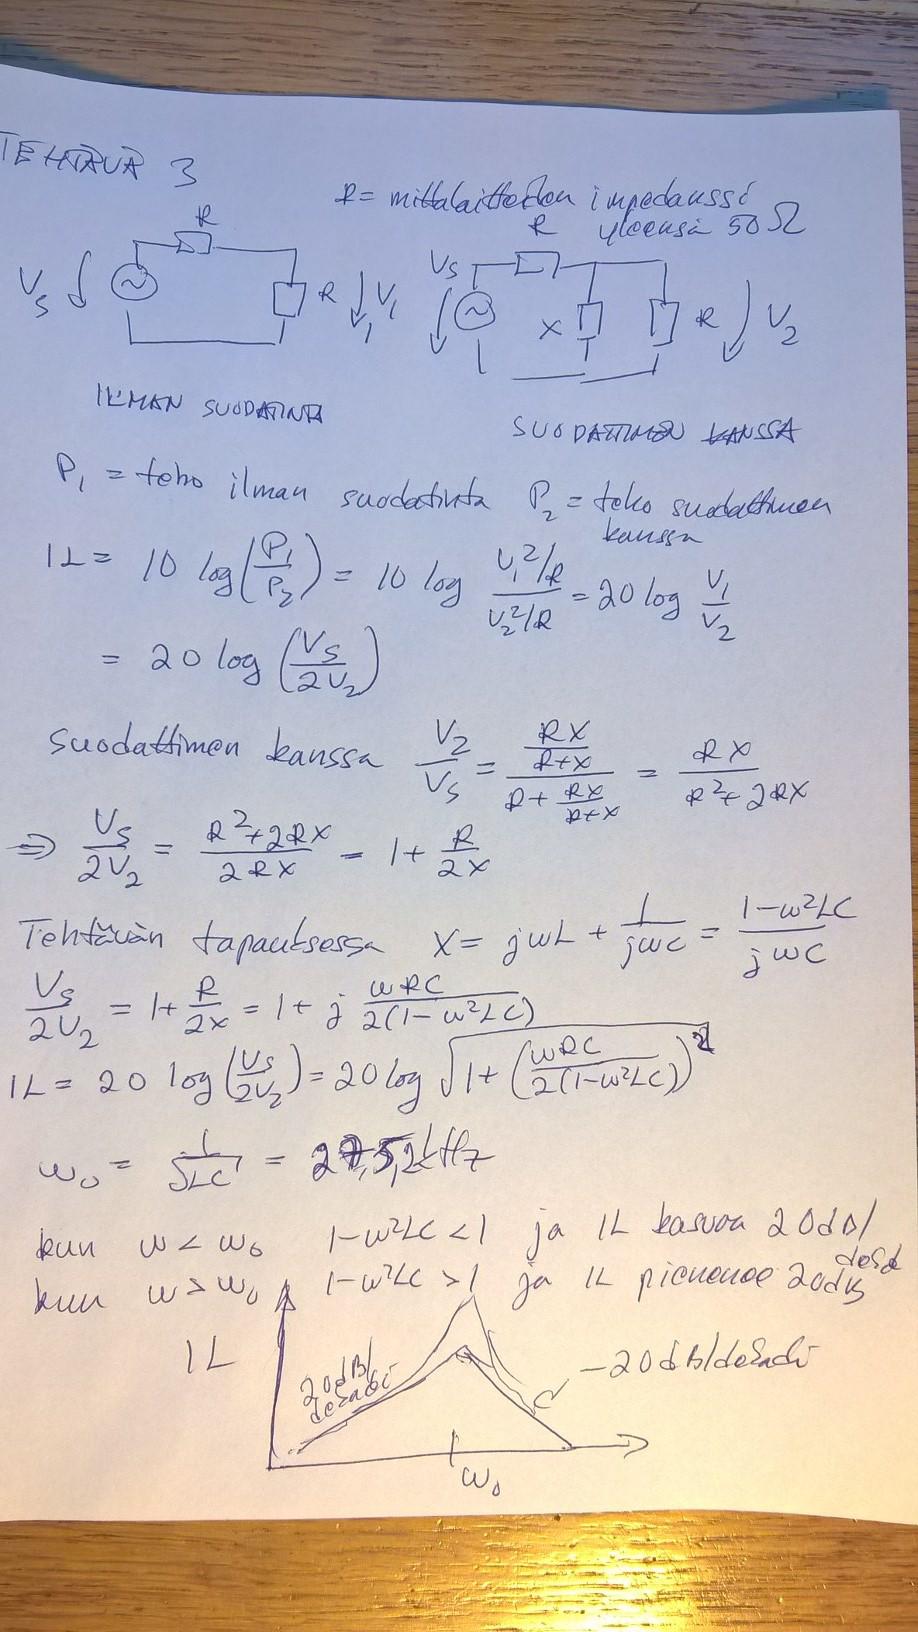 TEHTÄVÄ 3
R = mittalaitteiden impedanssi
yleensä 50 Ω
R
R
Vs
R
V1
Vs
X
R
V2
ILMAN SUODATINTA
SUODATTIMEN KANSSA
P1 = teho ilman suodatinta P2 = teho suodattimen
kanssa
IL = 10 log(P1/P2) = 10 log (V1²/R)/(V2²/R) = 20 log V1/V2
= 20 log (Vs/2V2)
Suodattimen kanssa V2/Vs = (RX/(R+X))/(R + RX/(R+X)) = RX/(R²+2RX)
⇒ Vs/2V2 = (R²+2RX)/2RX = 1 + R/2X
Tehtävän tapauksessa X = jωL + 1/jωC = (1-ω²LC)/jωC
Vs/2V2 = 1 + R/2X = 1 + j ωRC/(2(1-ω²LC))
IL = 20 log (Vs/2V2) = 20 log √(1 + (ωRC/(2(1-ω²LC)))²)
ω0 = 1/√LC = kHz
kun ω < ω0 1-ω²LC < 1 ja IL kasvaa 20dB/
dekd
kun ω > ω0 1-ω²LC > 1 ja IL pienenee 20dB
IL
20dB/
dekadi
-20dB/dekadi
ω0